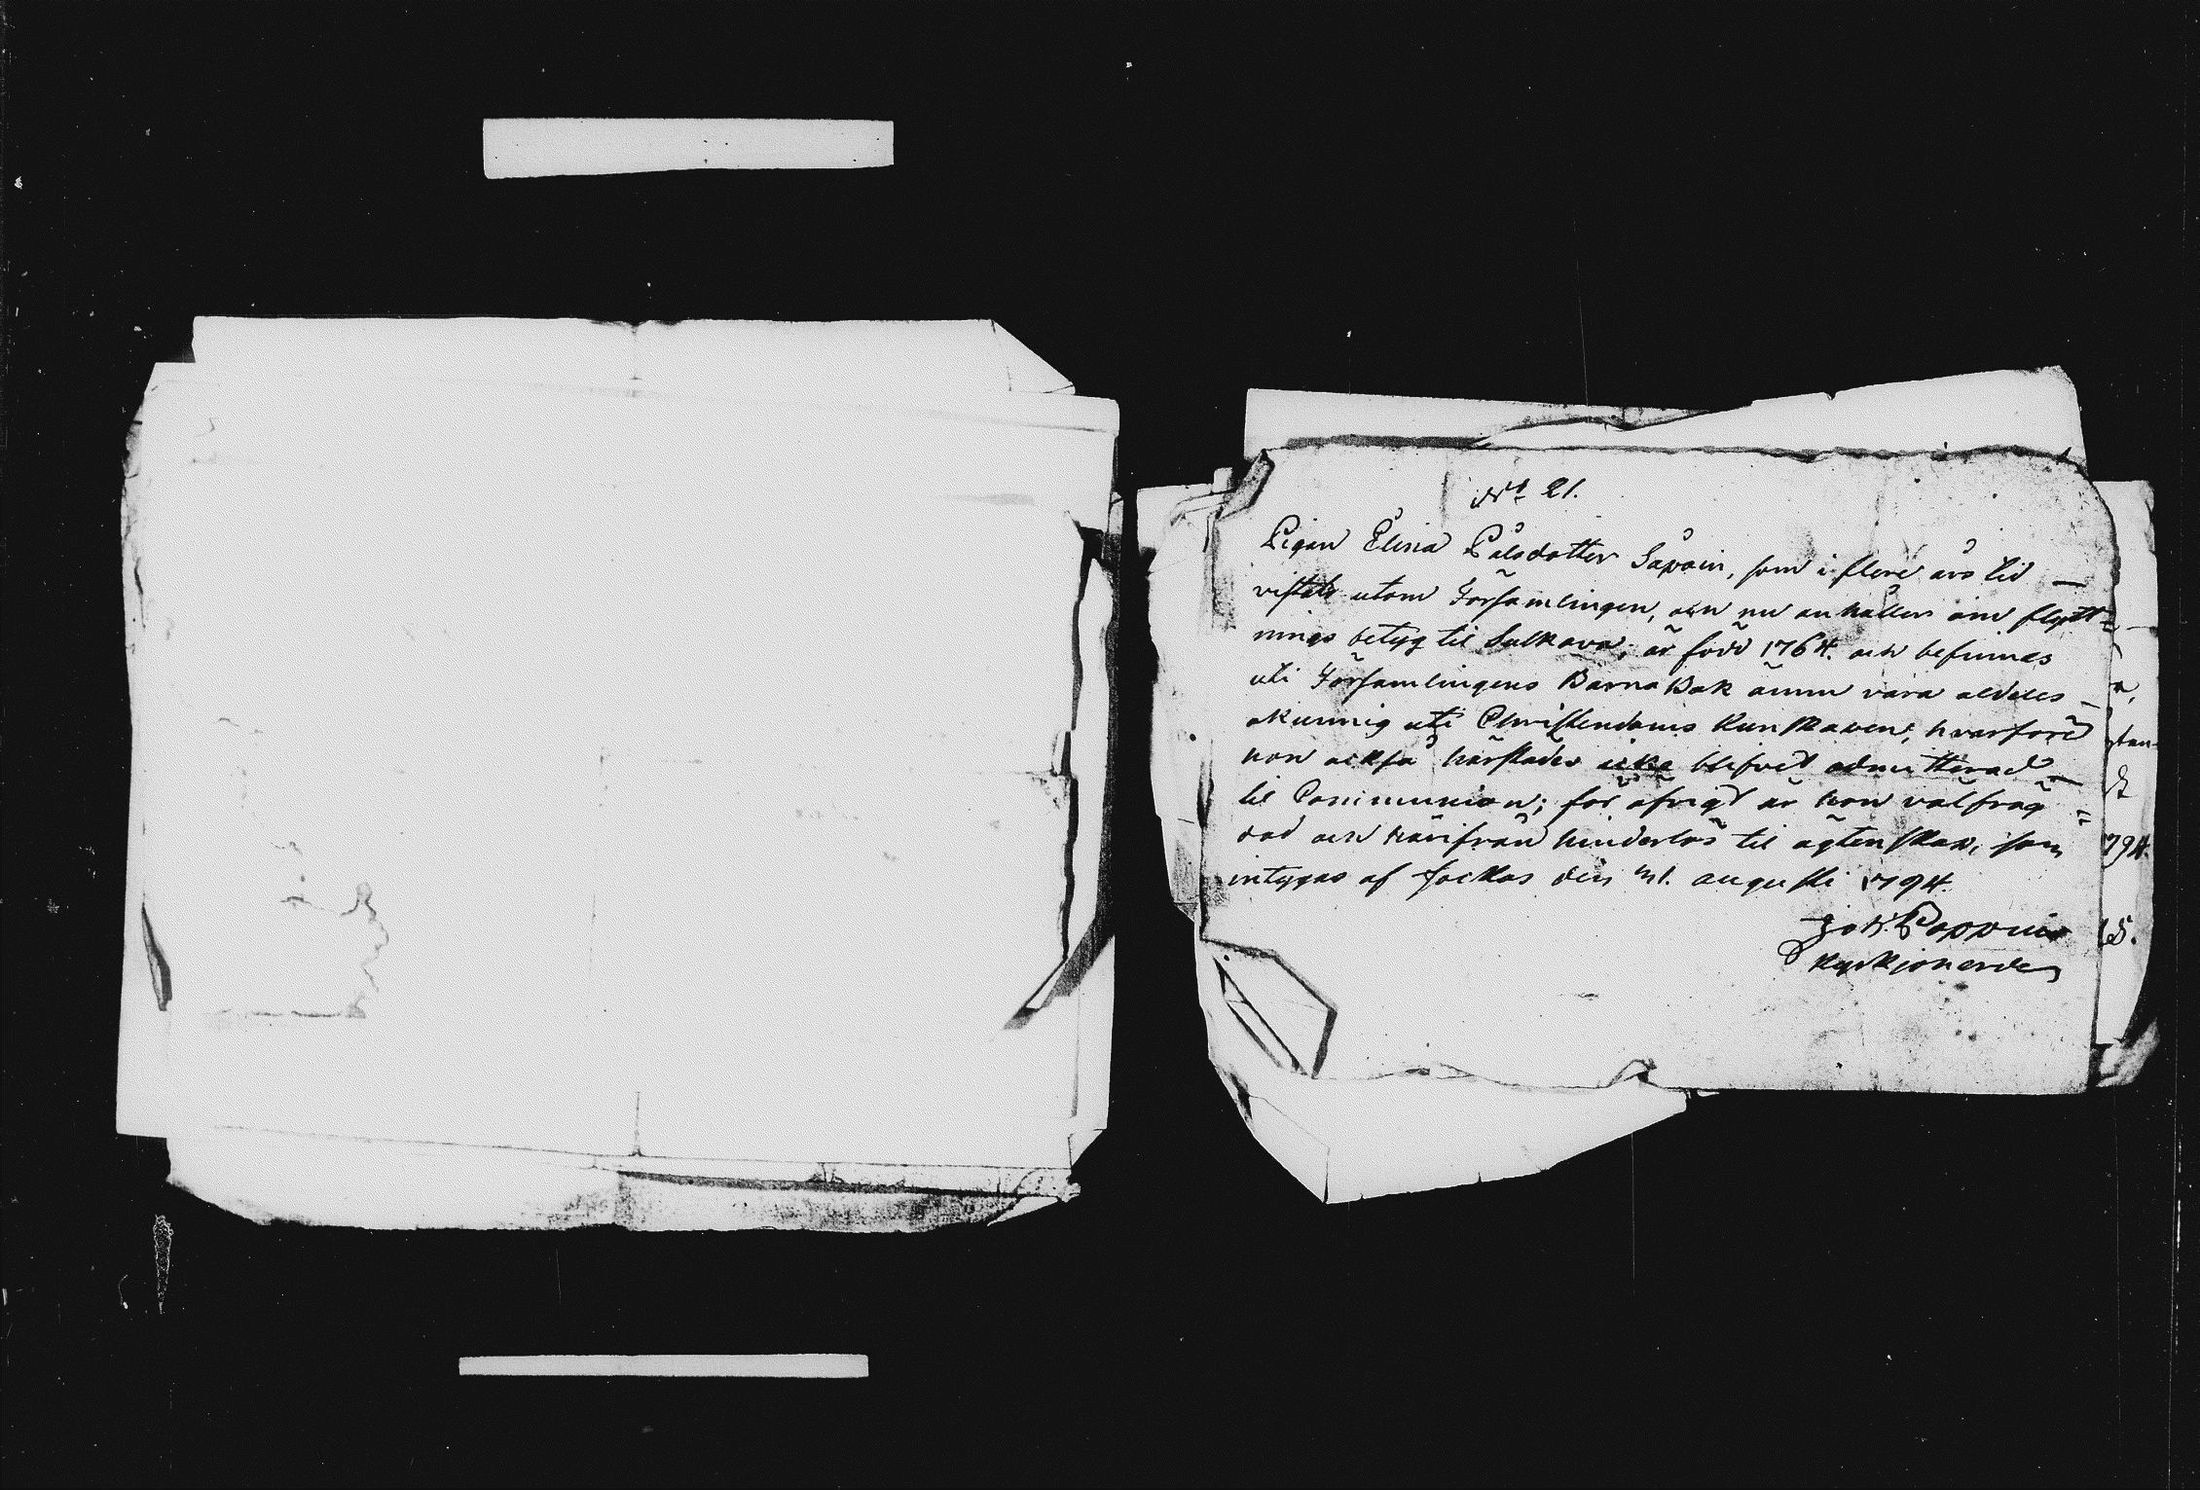 No 21.
Pigan Elina Pålsdotter Sapoin, som i flere års tid
vistats utom Församlingen, och nu anhåller om flytt=
nings betyg til Sulkava, är född 1764. och befinnes
uti Församlingens Barna Bok ännu vara aldeles
okunnig uti Christendoms kunskapen, hvarföre
hon också härstädes icke blifvet admitterad
til Communion; för öfrigt är hon välfräg=
dad och härifrån hinderlös til ägtenskap, som
intygas af Jockas den 31. augusti 1794.
Joh. Poppius
Kyrkjoherde
794.